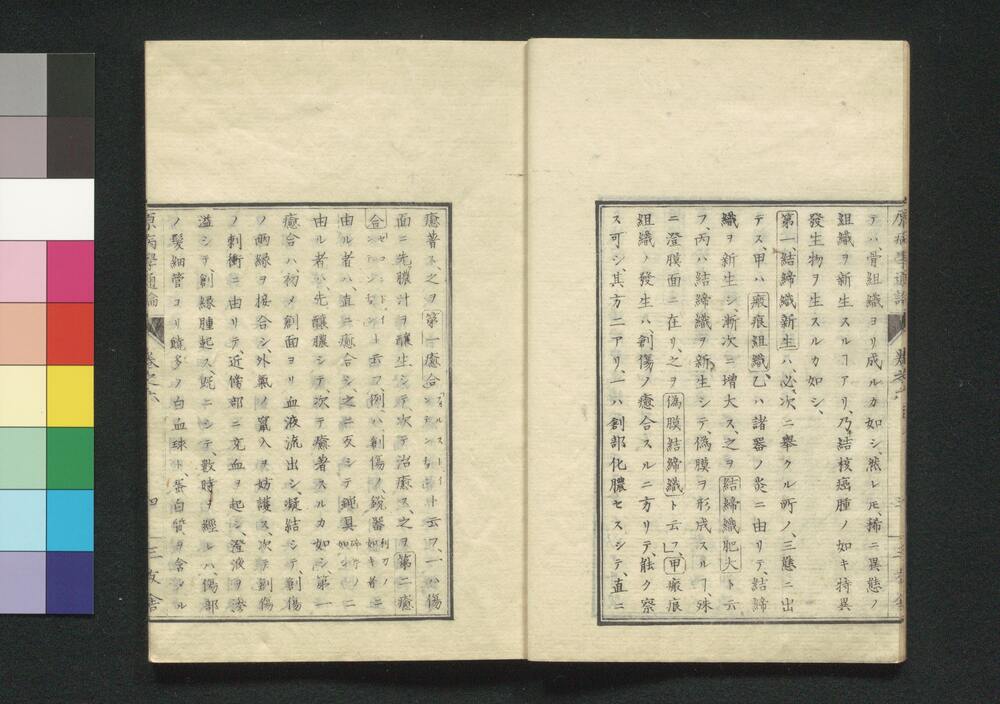 テハ骨組織ヨリ成ルカ如シ、然レ𪜈、稀ニ異態ノ
組織ヲ新生スルヿアリ、乃結核癌腫ノ如キ特異
發生物ヲ生スルカ如シ、
第一、結締織新生ハ、必、次ニ擧クル所ノ、三態ニ出
テス、甲ハ瘢痕組織、乙ハ諸器ノ炎ニ由リテ、結締
織ヲ新生シ、漸次ニ增大ス、之ヲ結締織肥大ト云
フ、丙ハ結締織ヲ新生シテ、偽膜ヲ形成スルヿ、殊
ニ澄膜面ニ在リ、之ヲ偽膜結締織ト云フ、甲瘢痕
組織ノ發生ハ、創傷ノ癒合スルニ方リテ、能ク察
ス可シ、其方二アリ、一ハ創部化膿セスシテ、直ニ
癒著ス、之ヲ第一癒合ト云フ、一ハ傷
面ニ先膿汁ヲ釀生シテ、次テ治療ス、之ヲ第二癒
合ト云フ、例ハ、創傷ノ銳器 利刀ノ如キ 并ニ
由ル者ハ、直ニ癒合シ、之ニ反シテ 鈍具 ニ
由ル者ハ、先釀膿シテ、次テ癒著スルカ如シ、第一
癒合ハ、初メ創面ヨリ血液流出シ、凝結シテ、創傷
ノ兩緣ヲ接合シ、外氣ノ竄入ヲ妨護ス、次テ創傷
ノ刺衝ニ由リテ、近傍部ニ充血ヲ起シ、澄液ヲ滲
溢シテ、創緣腫起ス、既ニシテ、數時ヲ經レハ、傷部
ノ髮細管ヨリ、饒多ノ白血球ト、蛋白質ヲ含メル
原病學通論 卷之六 四 三友舍